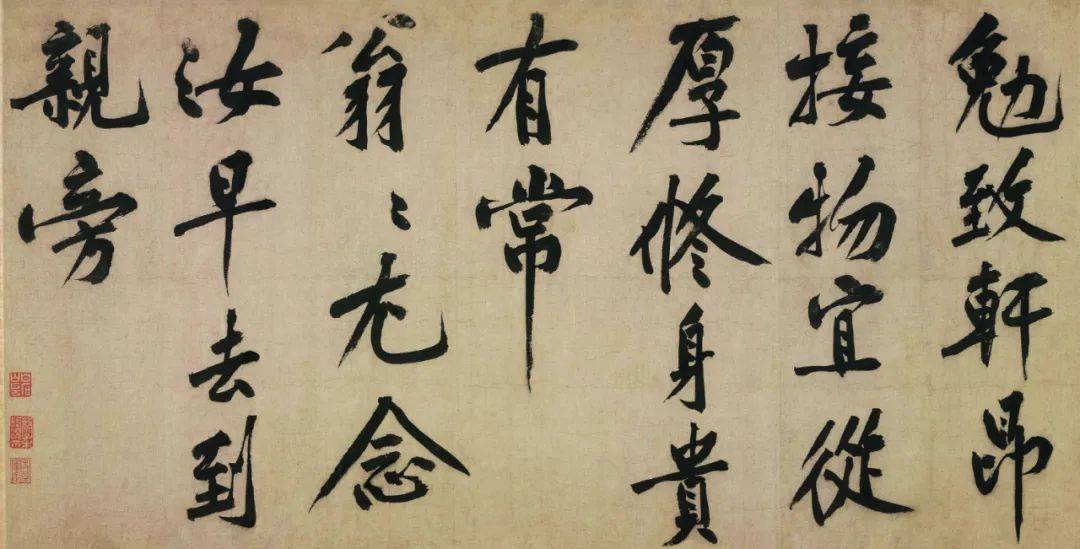 勉致軒昂
接物宜從
厚修身貴
有常
翁〻尤念
汝早去到
親旁